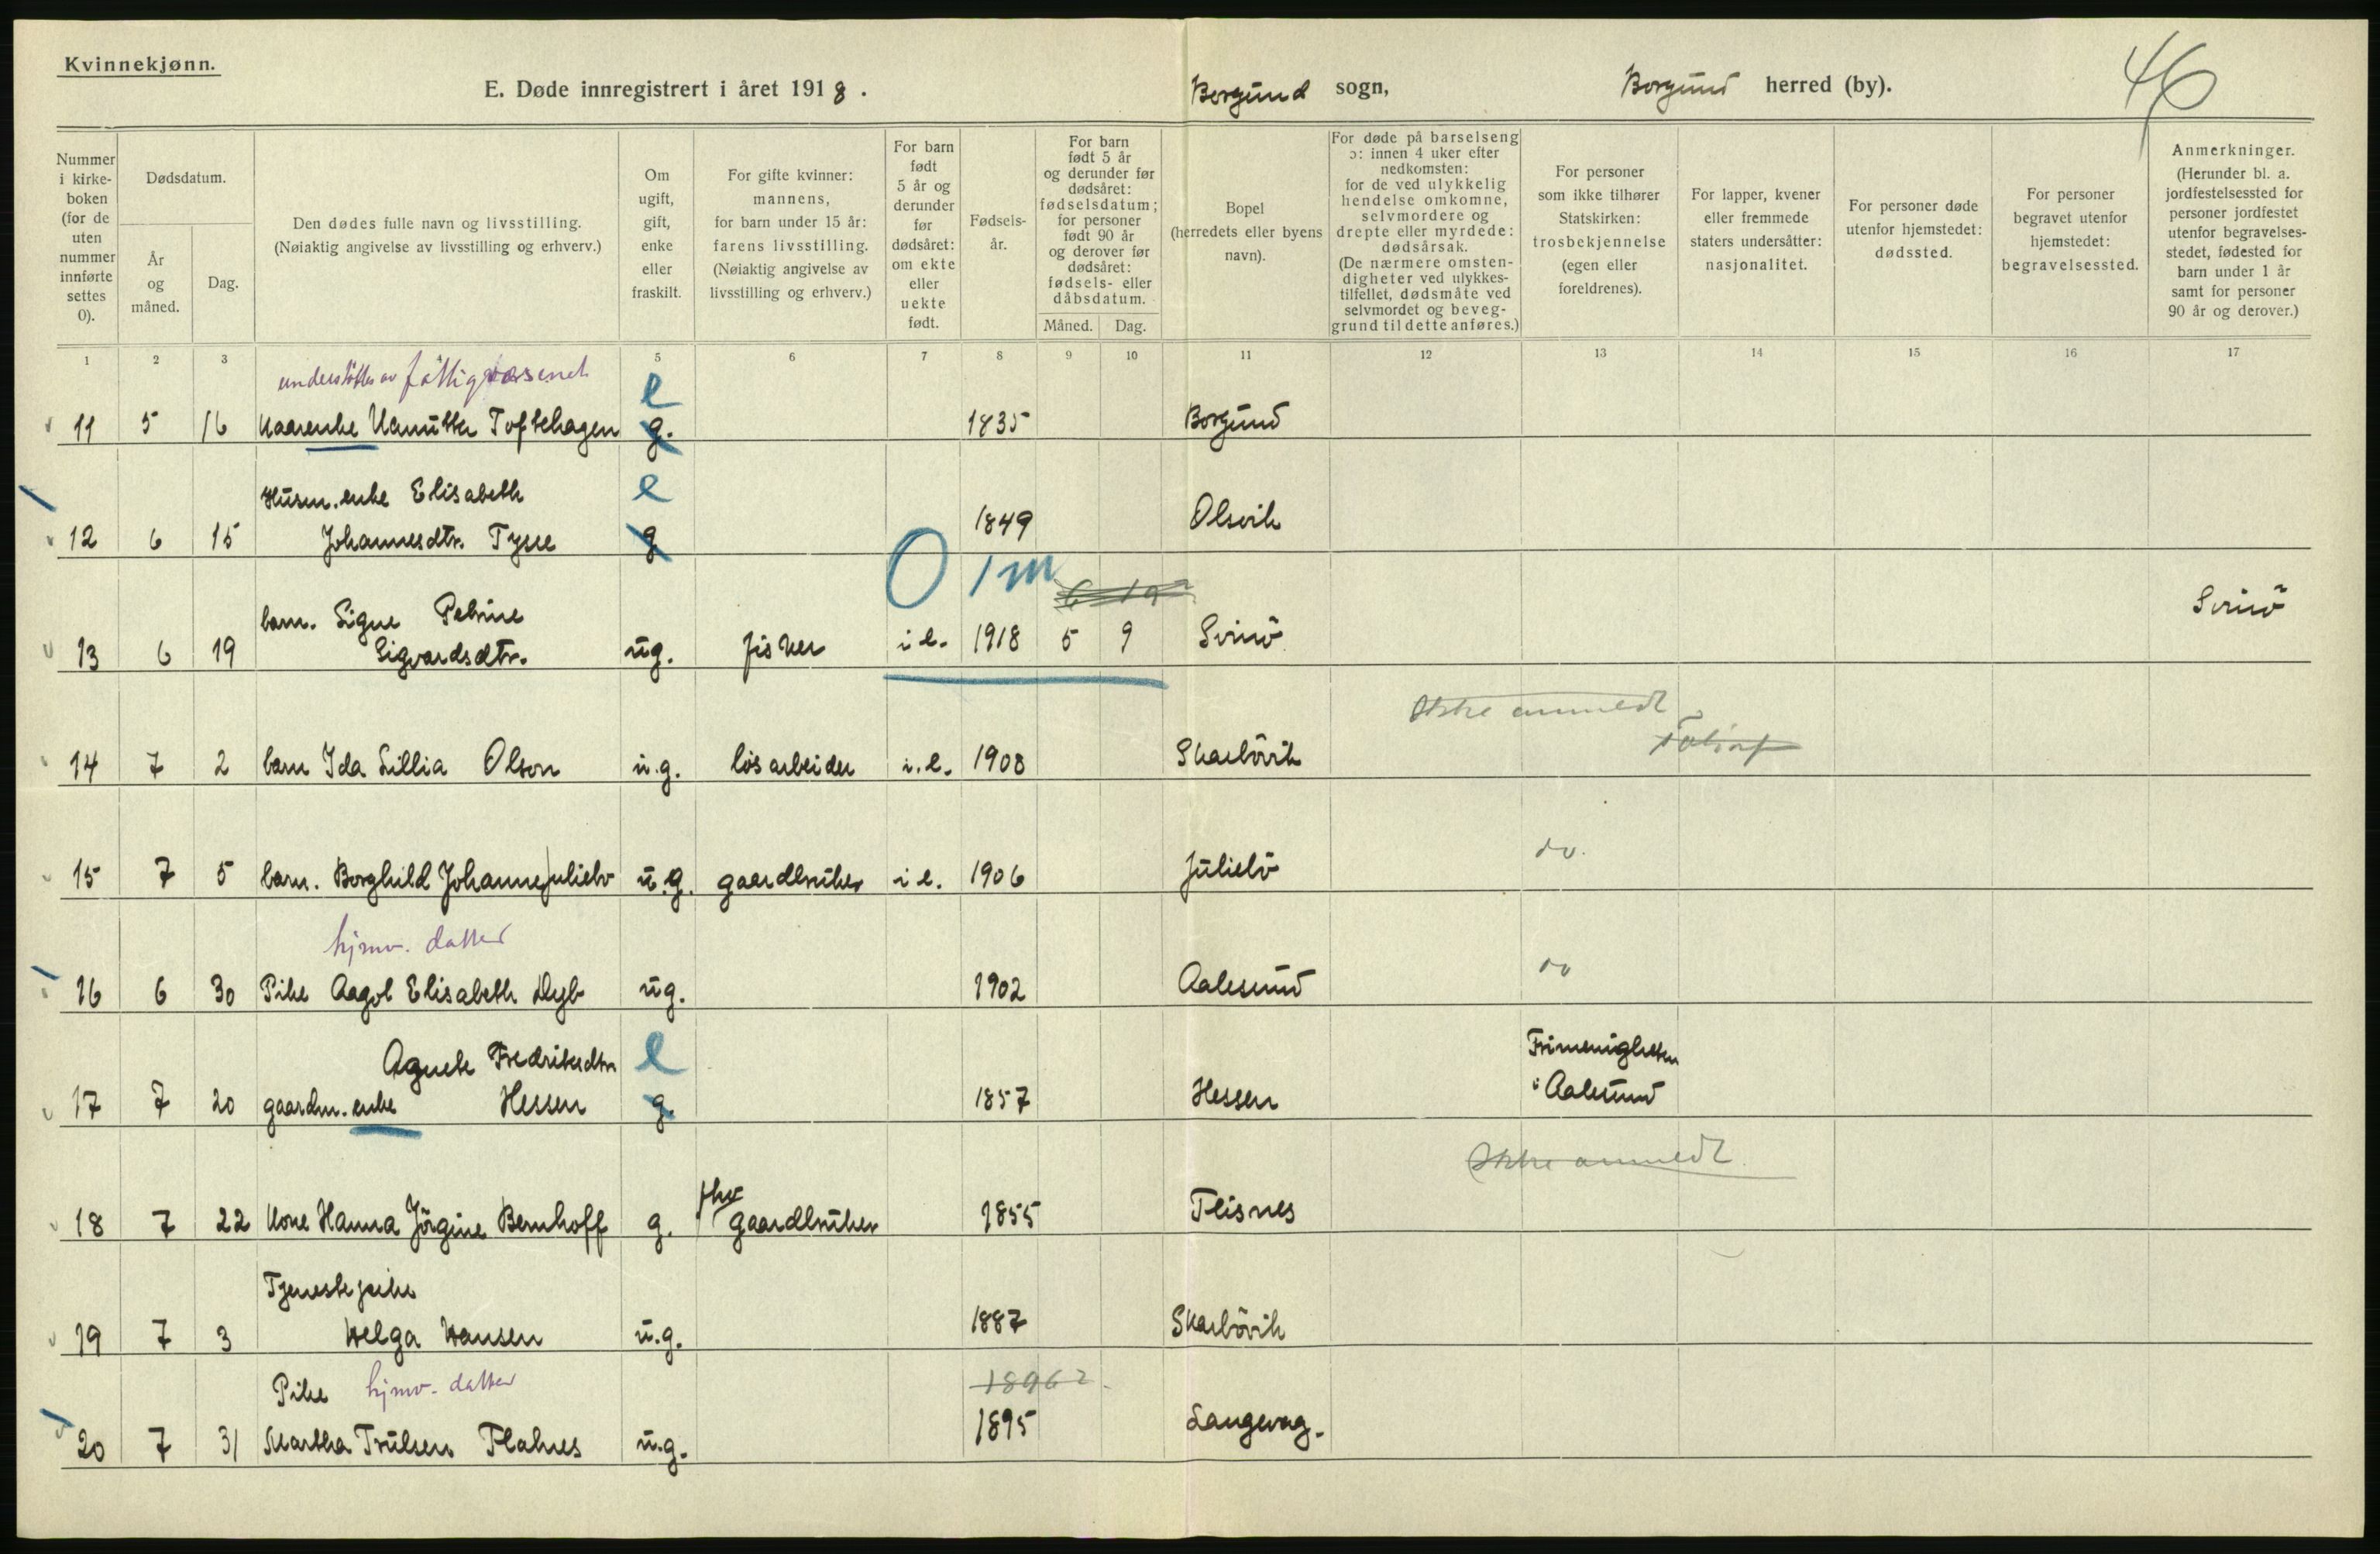 Kvinnekjønn.
E. Døde innregistrert i året 1918.
Borgund sogn,
Borgund herred (by).
46
Nummer i kirke-boken (for de uten nummer innførte settes 0).
Dødsdatum.
År og måned.
Dag.
Den dødes fulle navn og livsstilling.
(Nøiaktig angivelse av livsstilling og erhverv.)
Om ugift, gift, enke eller fraskilt.
For gifte kvinner: mannens, for barn under 15 år: farens livsstilling. (Nøiaktig angivelse av livsstilling og erhverv.)
For barn født 5 år og derunder før dødsåret: om ekte eller uekte født.
Fødsels-år.
For barn født 5 år og derunder før dødsåret: fødselsdatum; for personer født 90 år og derover før dødsåret: fødsels- eller dåbsdatum.
Måned. Dag.
Bopel (herredets eller byens navn).
For døde på barselseng ɔ: innen 4 uker efter nedkomsten: for de ved ulykkelig hendelse omkomne, selvmordere og drepte eller myrdede: dødsårsak. (De nærmere omsten-digheter ved ulykkes-tilfellet, dødsmåte ved selvmordet og beveg-grund til dette anføres.)
For personer som ikke tilhører Statskirken: trosbekjennelse (egen eller foreldrenes).
For lapper, kvener eller fremmede staters undersåtter: nasjonalitet.
For personer døde utenfor hjemstedet: dødssted.
For personer begravet utenfor hjemstedet: begravelsessted.
Anmerkninger. (Herunder bl. a. jordfestelsessted for personer jordfestet utenfor begravelses-stedet, fødested for barn under 1 år samt for personer 90 år og derover.)
1 2 3 5 6 7 8 9 10 11 12 13 14 15 16 17
understøttes av fattigvæsenet e
11 5 16 Kaarenke Knutte Toftehagen g. 1835 Borgund
Husm. enke Elisabeth e
12 6 15 Johannesdtr. Tysse g 1849 Olsvik
0 1 m
6 19
barn. Signe Petrine
13 6 19 Sigvardsdtr. ug. fisker i e. 1918 5 9 Svinö Svinö
Ikke anmeldt
14 7 2 barn Ida Lillia Olson u.g. løsarbeider i.e. 1908 Skarbövik
15 7 5 barn. Borghild Johanne Juliebö u.g. gaardbruker i e. 1906 Juliebö do.
hjmv. datter
16 6 30 Pike Aagot Elisabeth Dyb ug. 1902 Aalesund do
Agnete Fredriksdtr e Frimenigheten
17 7 20 gaardm. enke Hessen g. 1857 Hessen i Aalesund
Ikke anmeldt
18 7 22 Kone Hanna Jörgine Bernhoff g. fhv gaardbruker 1855 Flisnes
Tjenestepike
19 7 3 Helga Hansen u.g. 1887 Skarbövik
Pike hjmv. datter 1896?
20 7 31 Martha Trulsen Flatnes u.g. 1895 Langevag.